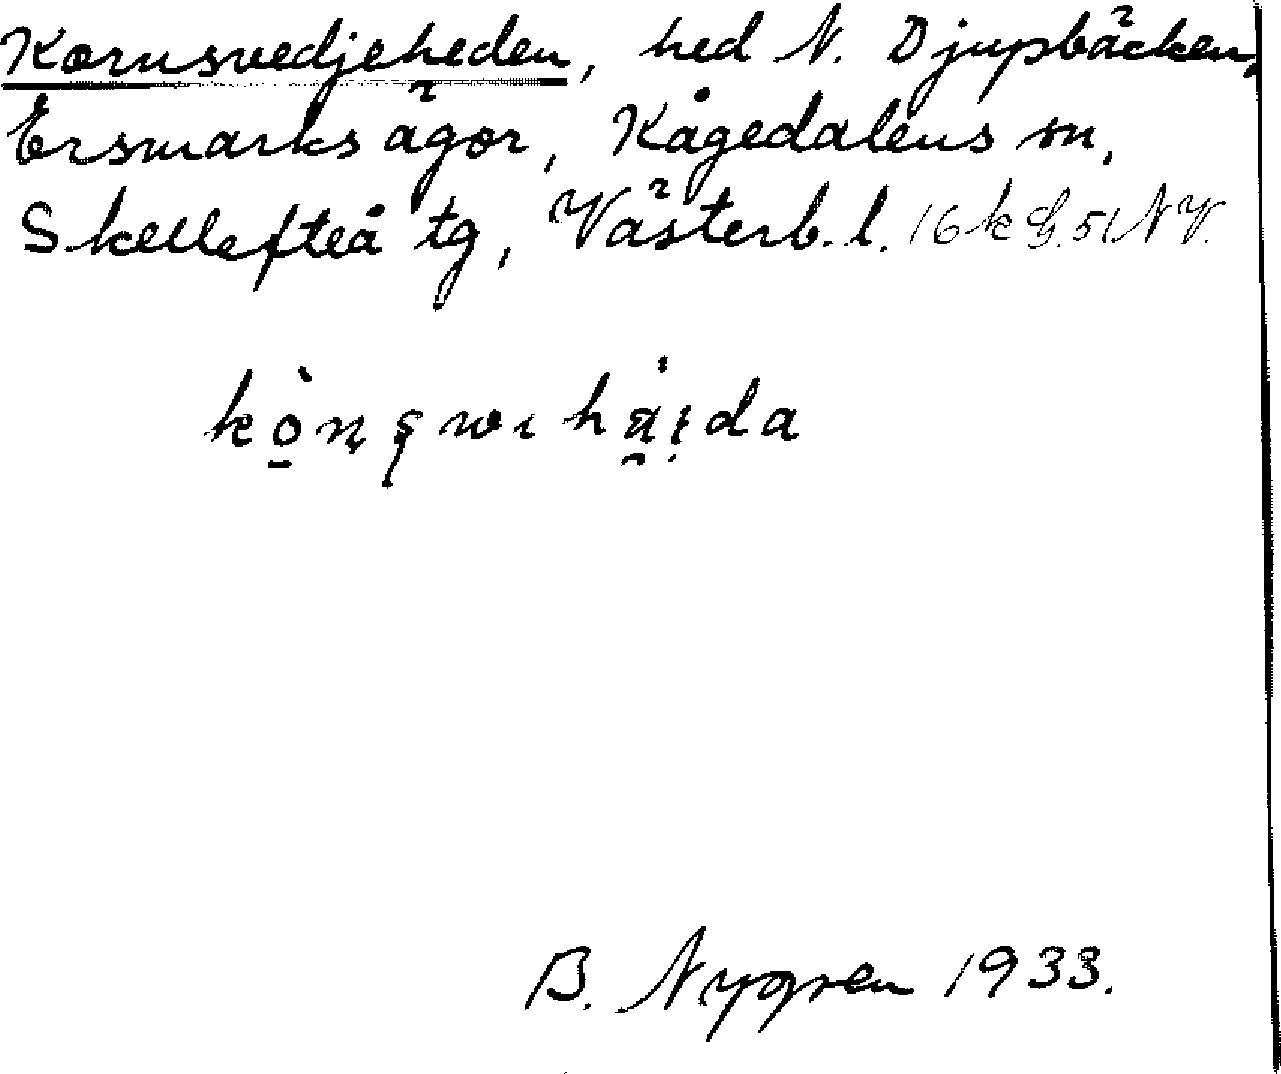 Kornsvedjeheden, hed N. Djupbäcken,
Ersmarks ägor, Kågedalens sn,
Skellefteå tg, Västerb. l. 16 k S. 51 NV.
kò̠ɳʂwıhä̯ı̣da
B. Nygren 1933.